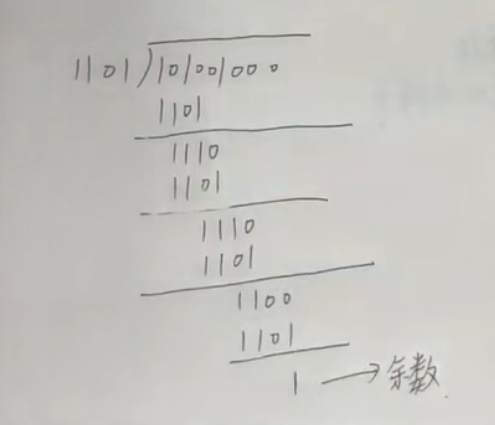 1101)101001000
1101
1110
1101
1110
1101
1100
1101
1→余数